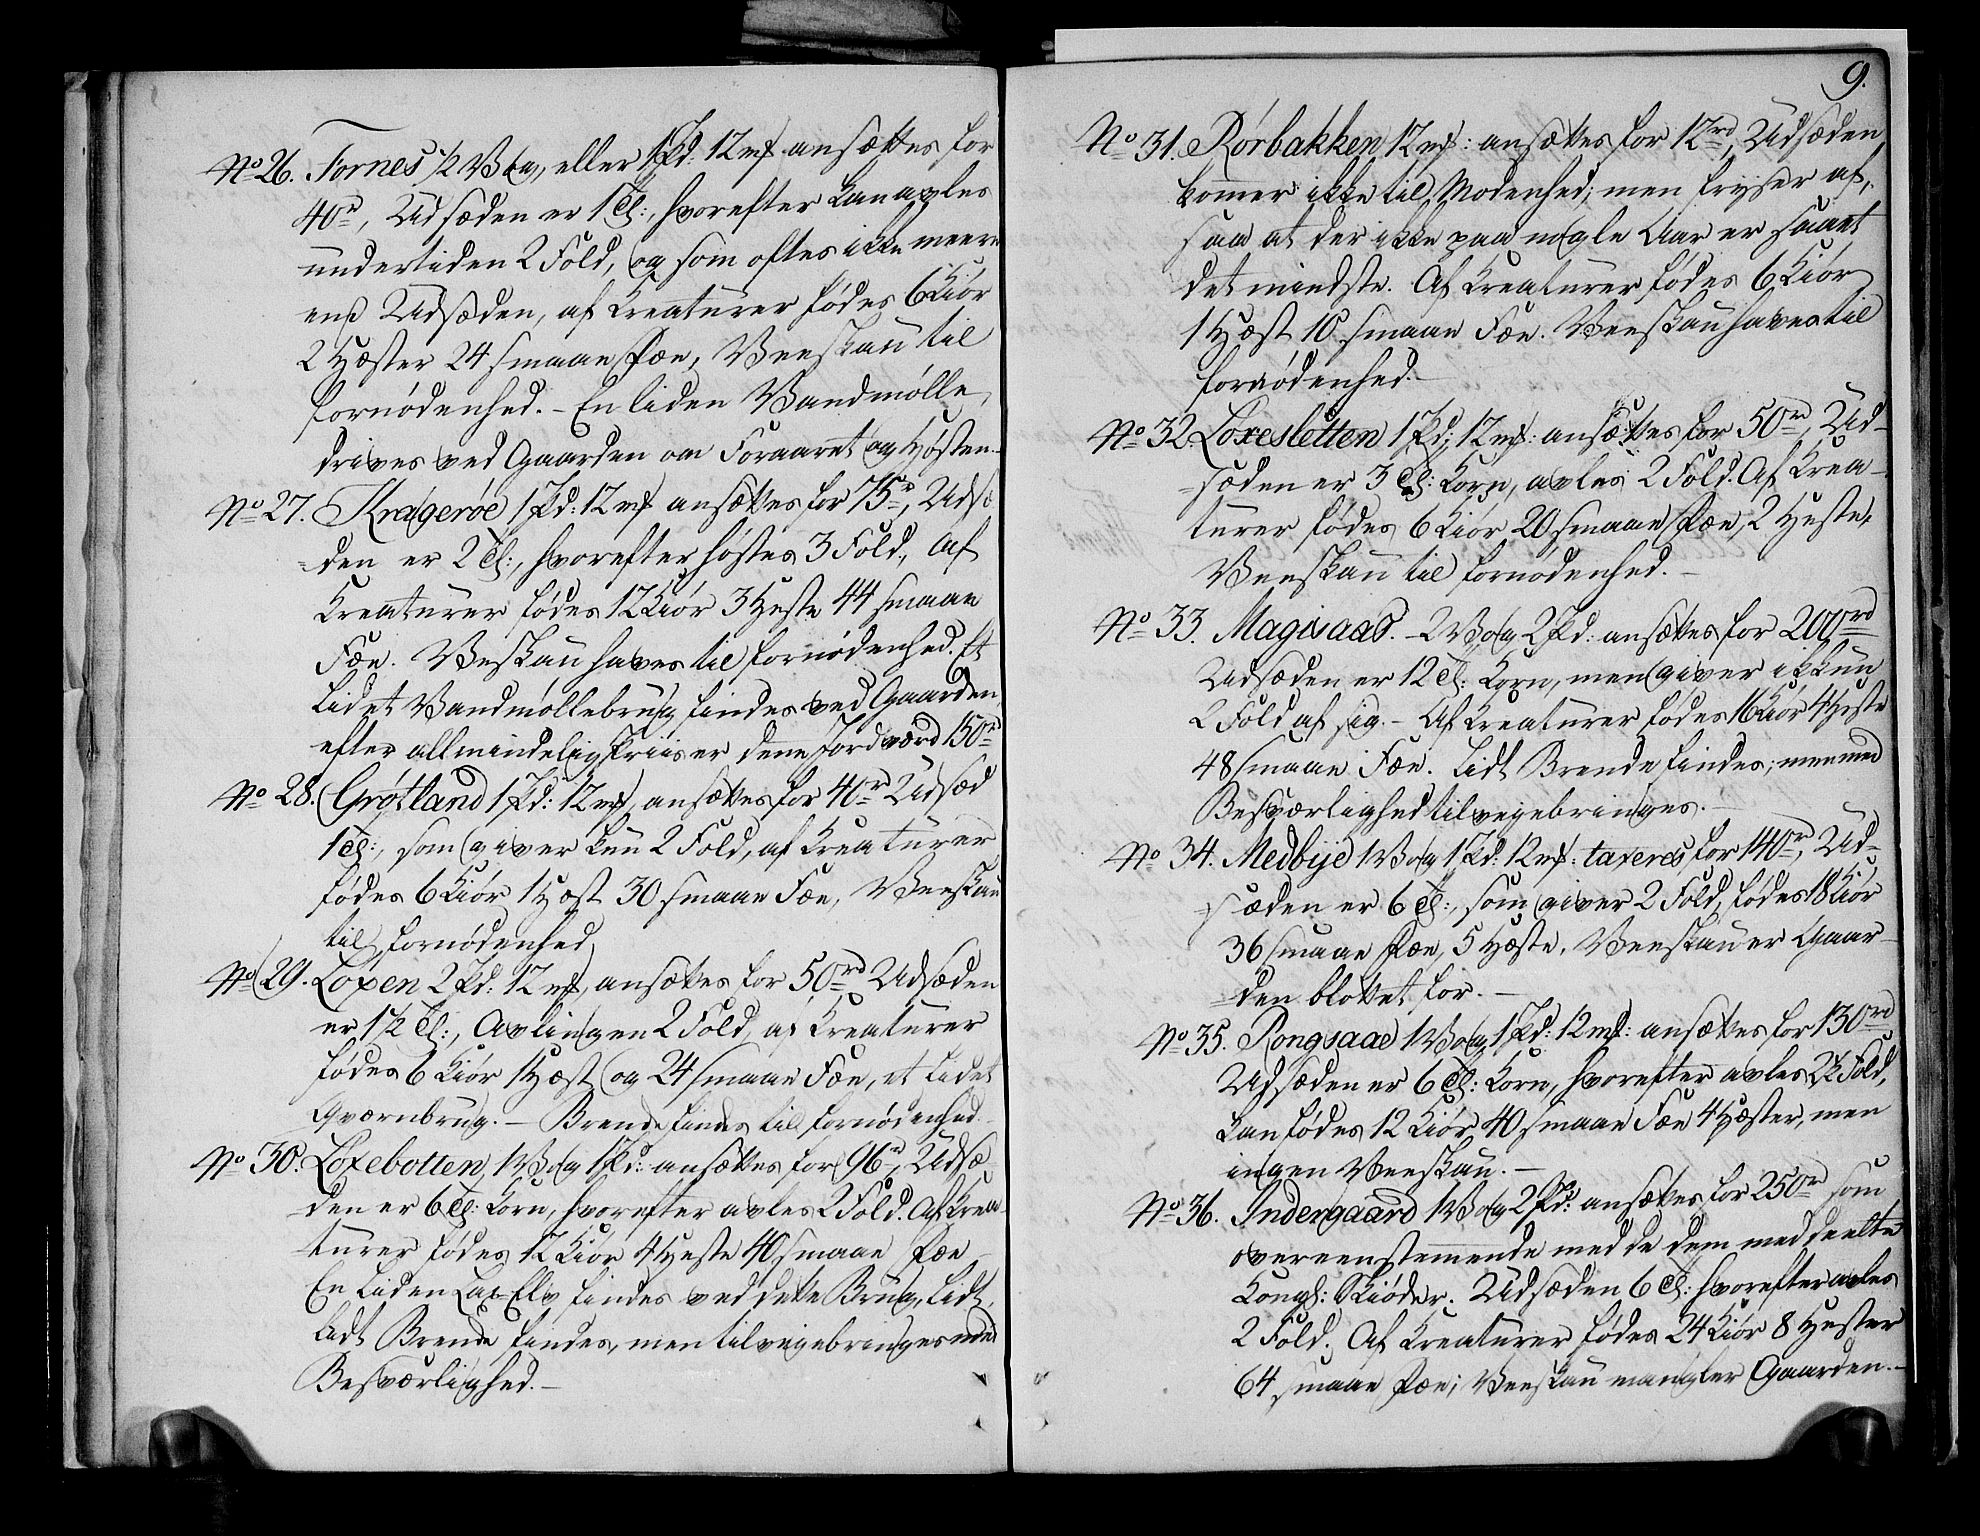 No 26. Fornes 1/2 Vog, eller 1 Pd: 12 mk ansættes for
40rd, Udsæden er 1 Td:, hvorefter kan avles
undertiden 2 Fold, og som oftes ikke meere
end Udsæden, af Kreaturer fødes 6 Kiör
2 Hæster 24 smaae Fæe, Veeskau til
fornødenhed. - En liden Vandmølle,
drives ved Gaarden om Foraaret og Høsten.
No 27. Kragerøe 1 Pd: 12 mk ansættes for 75rd, Udsæ-
den er 2 Td:, hvorefter høstes 3 Fold, Af
Kreaturer fødes 12 Kiör 3 Heste 44 smaae
Fæe. Veskau haves til fornødenhed. Et
Lidet Vandmøllebrug findes ved Gaarden,
efter allmindelig Priis er denne Jord værd 150rd
No 28. Grøtland 1 Pd: 12 mk, ansættes for 40rd Udsæd
1 Td:, som giver kun 2 Fold, af Kreaturer
fødes 6 Kiör 1 Hæst 30 smaae Fæe, Veeskau
til fornødenhed
No 29. Löxen 2 Pd: 12 mk, ansættes for 50rd Udsæden
er 1 1/2 Td:, Avlingen 2 Fold, af Kreaturer
fødes 6 Kiör 1 Hæst og 24 smaae Fæe, et Lidet
Qværnbrug. - Brende findes til fornødenhed.
No 30. Loxebotten 1 Vog 1 Pd: ansættes for 96rd, Udsæ-
den er 6 Td: Korn, hvorefter avles 2 Fold. Af Krea-
turer fødes 12 Kiör 4 Heste 40 smaae Fæe
En Liden Lax-Elv findes ved dette Brug, Lidt
Lidt Brende findes, men tilveiebringes med
Besværlighed. -
9.
No 31. Rörbakken 12 mk: ansættes for 12rd, Udsæden
kommer ikke til Modenhed; men fryser af,
saa at der ikke paa nogle Aar er saaet
det mindste. Af Kreaturer fødes 6 Kiör
1 Hæst 10 smaae Fæe. Veeskau haves til
fornödenhed. -
No 32. Loxesletten 1 Pd: 12 mk: ansættes for 50rd, Ud-
sæden er 3 Td: Korn, avles 2 Fold. Af Krea-
turer fødes 6 Kiör 20 smaae Fæe, 2 Heste,
Veeskau til fornødenhed. -
No 33. Magisaas. - 2 Vog 2 Pd: ansættes for 200rd
Udsæden er 12 Td: Korn, men giver ikkun
2 Fold af sig. - Af Kreaturer fødes 16 Kiör 4 Heste
48 smaae Fæe. Lidt Brende findes; men med
Besværlighed tilvejebringes. -
No 34. Medbye 1 Vog 1 Pd: 12 mk: taxeres for 140rd, Ud-
sæden er 6 Td:, som giver 2 Fold, fødes 18 Kiör
36 smaae Fæe, 5 Hæste, Veeskau er Gaar-
den blottet for. -
No 35. Rongsaae 1 Vog 1 Pd: 12 mk: ansættes for 130rd
Udsæden er 6 Td: Korn, hvorefter avles 2 1/2 Fold,
kan fødes 12 Kiör 40 smaae Fæe 4 Hæster, men
ingen Veeskau. -
No 36. Indergaard 1 Vog 2 Pd: ansættes for 250rd som
overeenstemmende med de dem meddeelte
Kongl: Skiøder. Udsæden 6 Td: hvorefter avles
2 Fold. Af Kreaturer fødes 24 Kiör 8 Hester
64 smaae Fæe; Veeskau mangler Gaarden. -